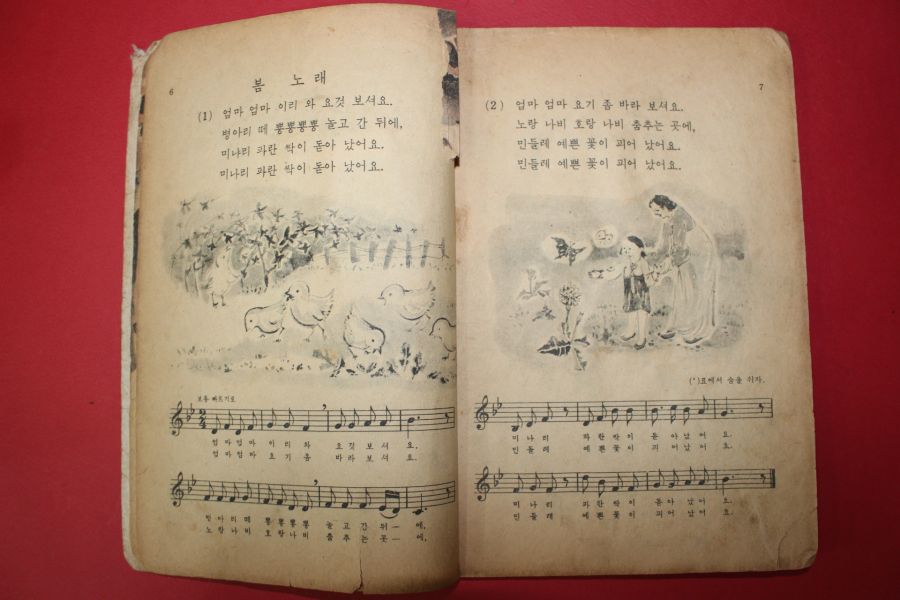 6
봄 노래
(1) 엄마 엄마 이리 와 요것 보셔요.
병아리 떼 뿅뿅뿅뿅 놀고 간 뒤에,
미나리 파란 싹이 돋아 났어요.
미나리 파란 싹이 돋아 났어요.
보통 빠르기로
엄마엄마 이리와 요것보셔요,
엄마엄마 요기좀 바라보셔요,
병아리떼 뿅뿅뿅뿅 놀고간뒤ㅡ에,
노랑나비 호랑나비 춤추는곳ㅡ에,
7
(2) 엄마 엄마 요기 좀 바라 보셔요.
노랑 나비 호랑 나비 춤추는 곳에,
민들레 예쁜 꽃이 피어 났어요.
민들레 예쁜 꽃이 피어 났어요.
(’)표에서 숨을 쉬자.
미나리 파란싹이 돋아났어요.
민들레 예쁜꽃이 피어났어요.
미나리 파란싹이 돋아났어요.
민들레 예쁜꽃이 피어났어요.